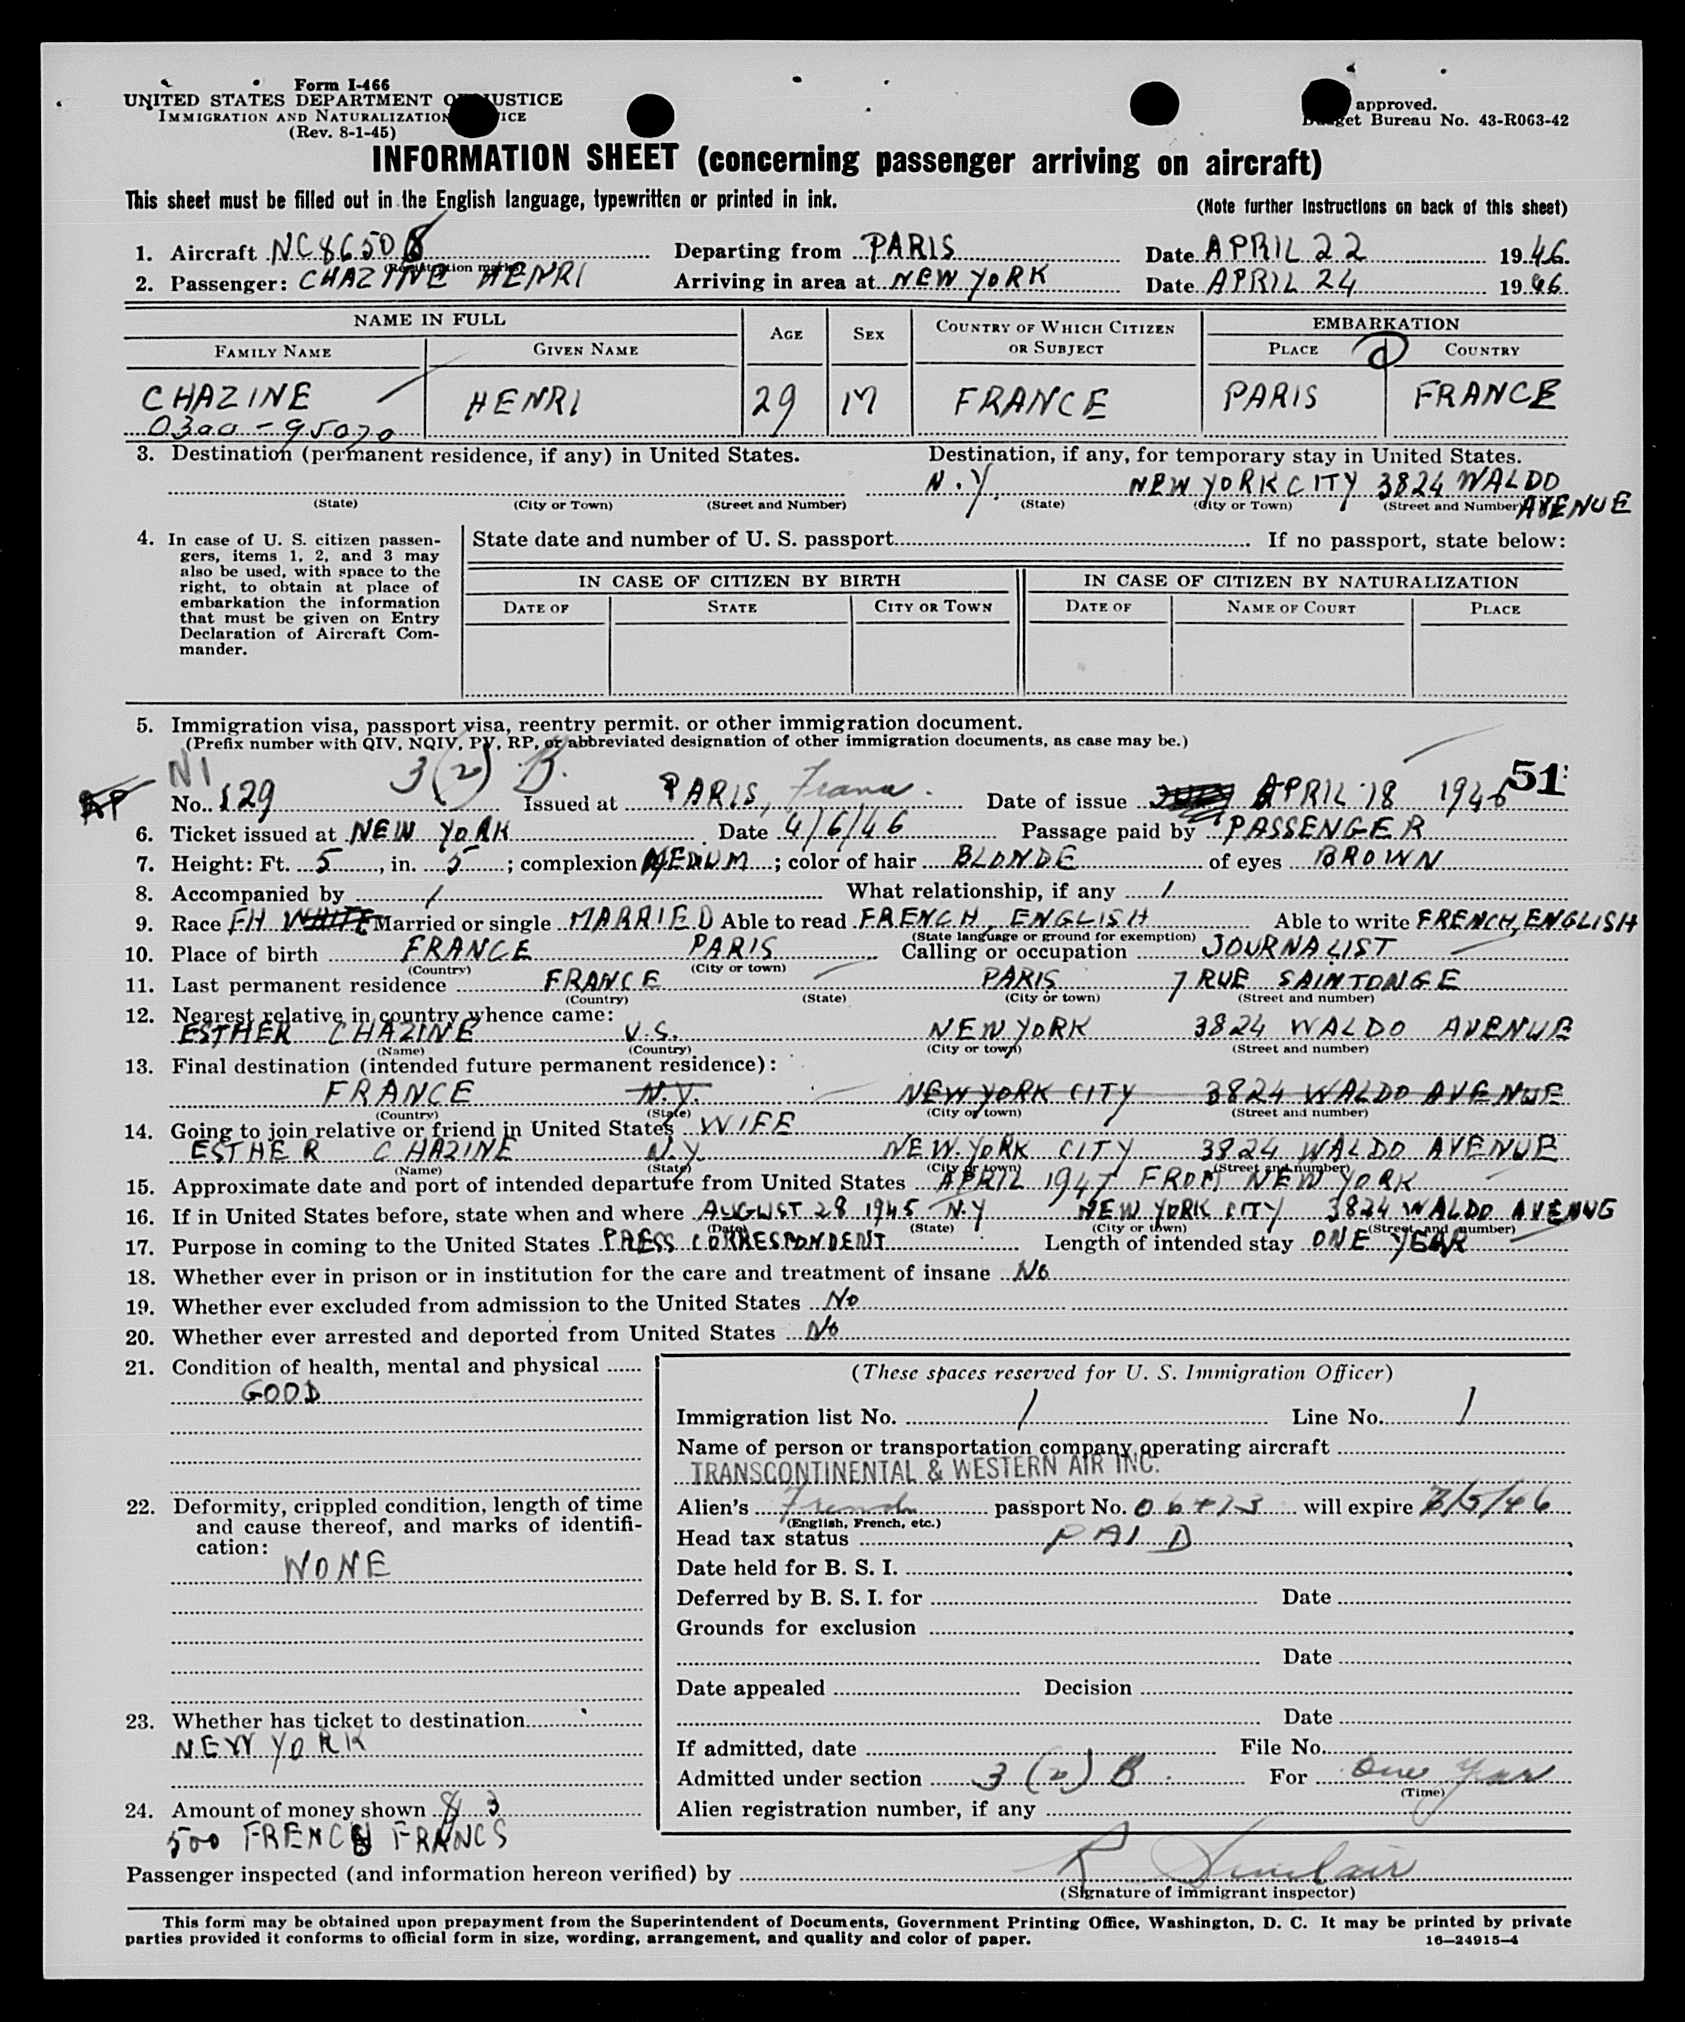 Form I-466
UNITED STATES DEPARTMENT OF JUSTICE
IMMIGRATION AND NATURALIZATION SERVICE
(Rev. 8-1-45)
approved.
Budget Bureau No. 43-R063-42
INFORMATION SHEET (concerning passenger arriving on aircraft)
This sheet must be filled out in the English language, typewritten or printed in ink.
(Note further instructions on back of this sheet)
1. Aircraft NC86508 Departing from PARIS Date APRIL 22 1946.
(Registration marks)
2. Passenger: CHAZINE HENRI Arriving in area at NEW YORK Date APRIL 24 1946.
NAME IN FULL AGE SEX COUNTRY OF WHICH CITIZEN OR SUBJECT EMBARKATION
FAMILY NAME GIVEN NAME PLACE COUNTRY
CHAZINE HENRI 29 M FRANCE PARIS FRANCE
0300-95070
3. Destination (permanent residence, if any) in United States. Destination, if any, for temporary stay in United States.
N.Y. NEW YORK CITY 3824 WALDO AVENUE
(State) (City or Town) (Street and Number) (State) (City or Town) (Street and Number)
4. In case of U. S. citizen passen-
gers, items 1, 2, and 3 may
also be used, with space to the
right, to obtain at place of
embarkation the information
that must be given on Entry
Declaration of Aircraft Com-
mander.
State date and number of U. S. passport If no passport, state below:
IN CASE OF CITIZEN BY BIRTH IN CASE OF CITIZEN BY NATURALIZATION
DATE OF STATE CITY OR TOWN DATE OF NAME OF COURT PLACE
5. Immigration visa, passport visa, reentry permit. or other immigration document.
(Prefix number with QIV, NQIV, PV, RP, or abbreviated designation of other immigration documents, as case may be.)
N1 3(2) B. 51
No. 129 Issued at PARIS, France. Date of issue APRIL 18 1946
6. Ticket issued at NEW YORK Date 4/6/46 Passage paid by PASSENGER
7. Height: Ft. 5, in. 5; complexion MEDIUM; color of hair BLONDE of eyes BROWN
8. Accompanied by / What relationship, if any /
9. Race FH WHITE Married or single MARRIED Able to read FRENCH, ENGLISH Able to write FRENCH, ENGLISH
(State language or ground for exemption)
10. Place of birth FRANCE PARIS Calling or occupation JOURNALIST
(Country) (City or town)
11. Last permanent residence FRANCE PARIS 7 RUE SAINTONGE
(Country) (State) (City or town) (Street and number)
12. Nearest relative in country whence came:
ESTHER CHAZINE U.S. NEW YORK 3824 WALDO AVENUE
(Name) (Country) (City or town) (Street and number)
13. Final destination (intended future permanent residence):
FRANCE N.Y. NEW YORK CITY 3824 WALDO AVENUE
(Country) (State) (City or town) (Street and number)
14. Going to join relative or friend in United States WIFE
ESTHER CHAZINE N.Y. NEW YORK CITY 3824 WALDO AVENUE
(Name) (State) (City or town) (Street and number)
15. Approximate date and port of intended departure from United States APRIL 1947 FROM NEW YORK
16. If in United States before, state when and where AUGUST 28 1945 N.Y NEW YORK CITY 3824 WALDO AVENUE
(Date) (State) (City or town) (Street and number)
17. Purpose in coming to the United States PRESS CORRESPONDENT Length of intended stay ONE YEAR
18. Whether ever in prison or in institution for the care and treatment of insane No
19. Whether ever excluded from admission to the United States No
20. Whether ever arrested and deported from United States No
21. Condition of health, mental and physical
GOOD
22. Deformity, crippled condition, length of time
and cause thereof, and marks of identifi-
cation:
NONE
23. Whether has ticket to destination
NEW YORK
24. Amount of money shown $ 3
500 FRENCH FRANCS
(These spaces reserved for U. S. Immigration Officer)
Immigration list No. 1 Line No. 1
Name of person or transportation company operating aircraft
TRANSCONTINENTAL & WESTERN AIR INC.
Alien's French passport No. will expire 3/5/46
(English, French, etc.)
Head tax status PAID
Date held for B. S. I.
Deferred by B. S. I. for Date
Grounds for exclusion
Date
Date appealed Decision
Date
If admitted, date File No.
Admitted under section 3 (2) B. For One Year
(Time)
Alien registration number, if any
Passenger inspected (and information hereon verified) by R Sinclair
(Signature of immigrant inspector)
This form may be obtained upon prepayment from the Superintendent of Documents, Government Printing Office, Washington, D. C. It may be printed by private
parties provided it conforms to official form in size, wording, arrangement, and quality and color of paper.
16—24915-4